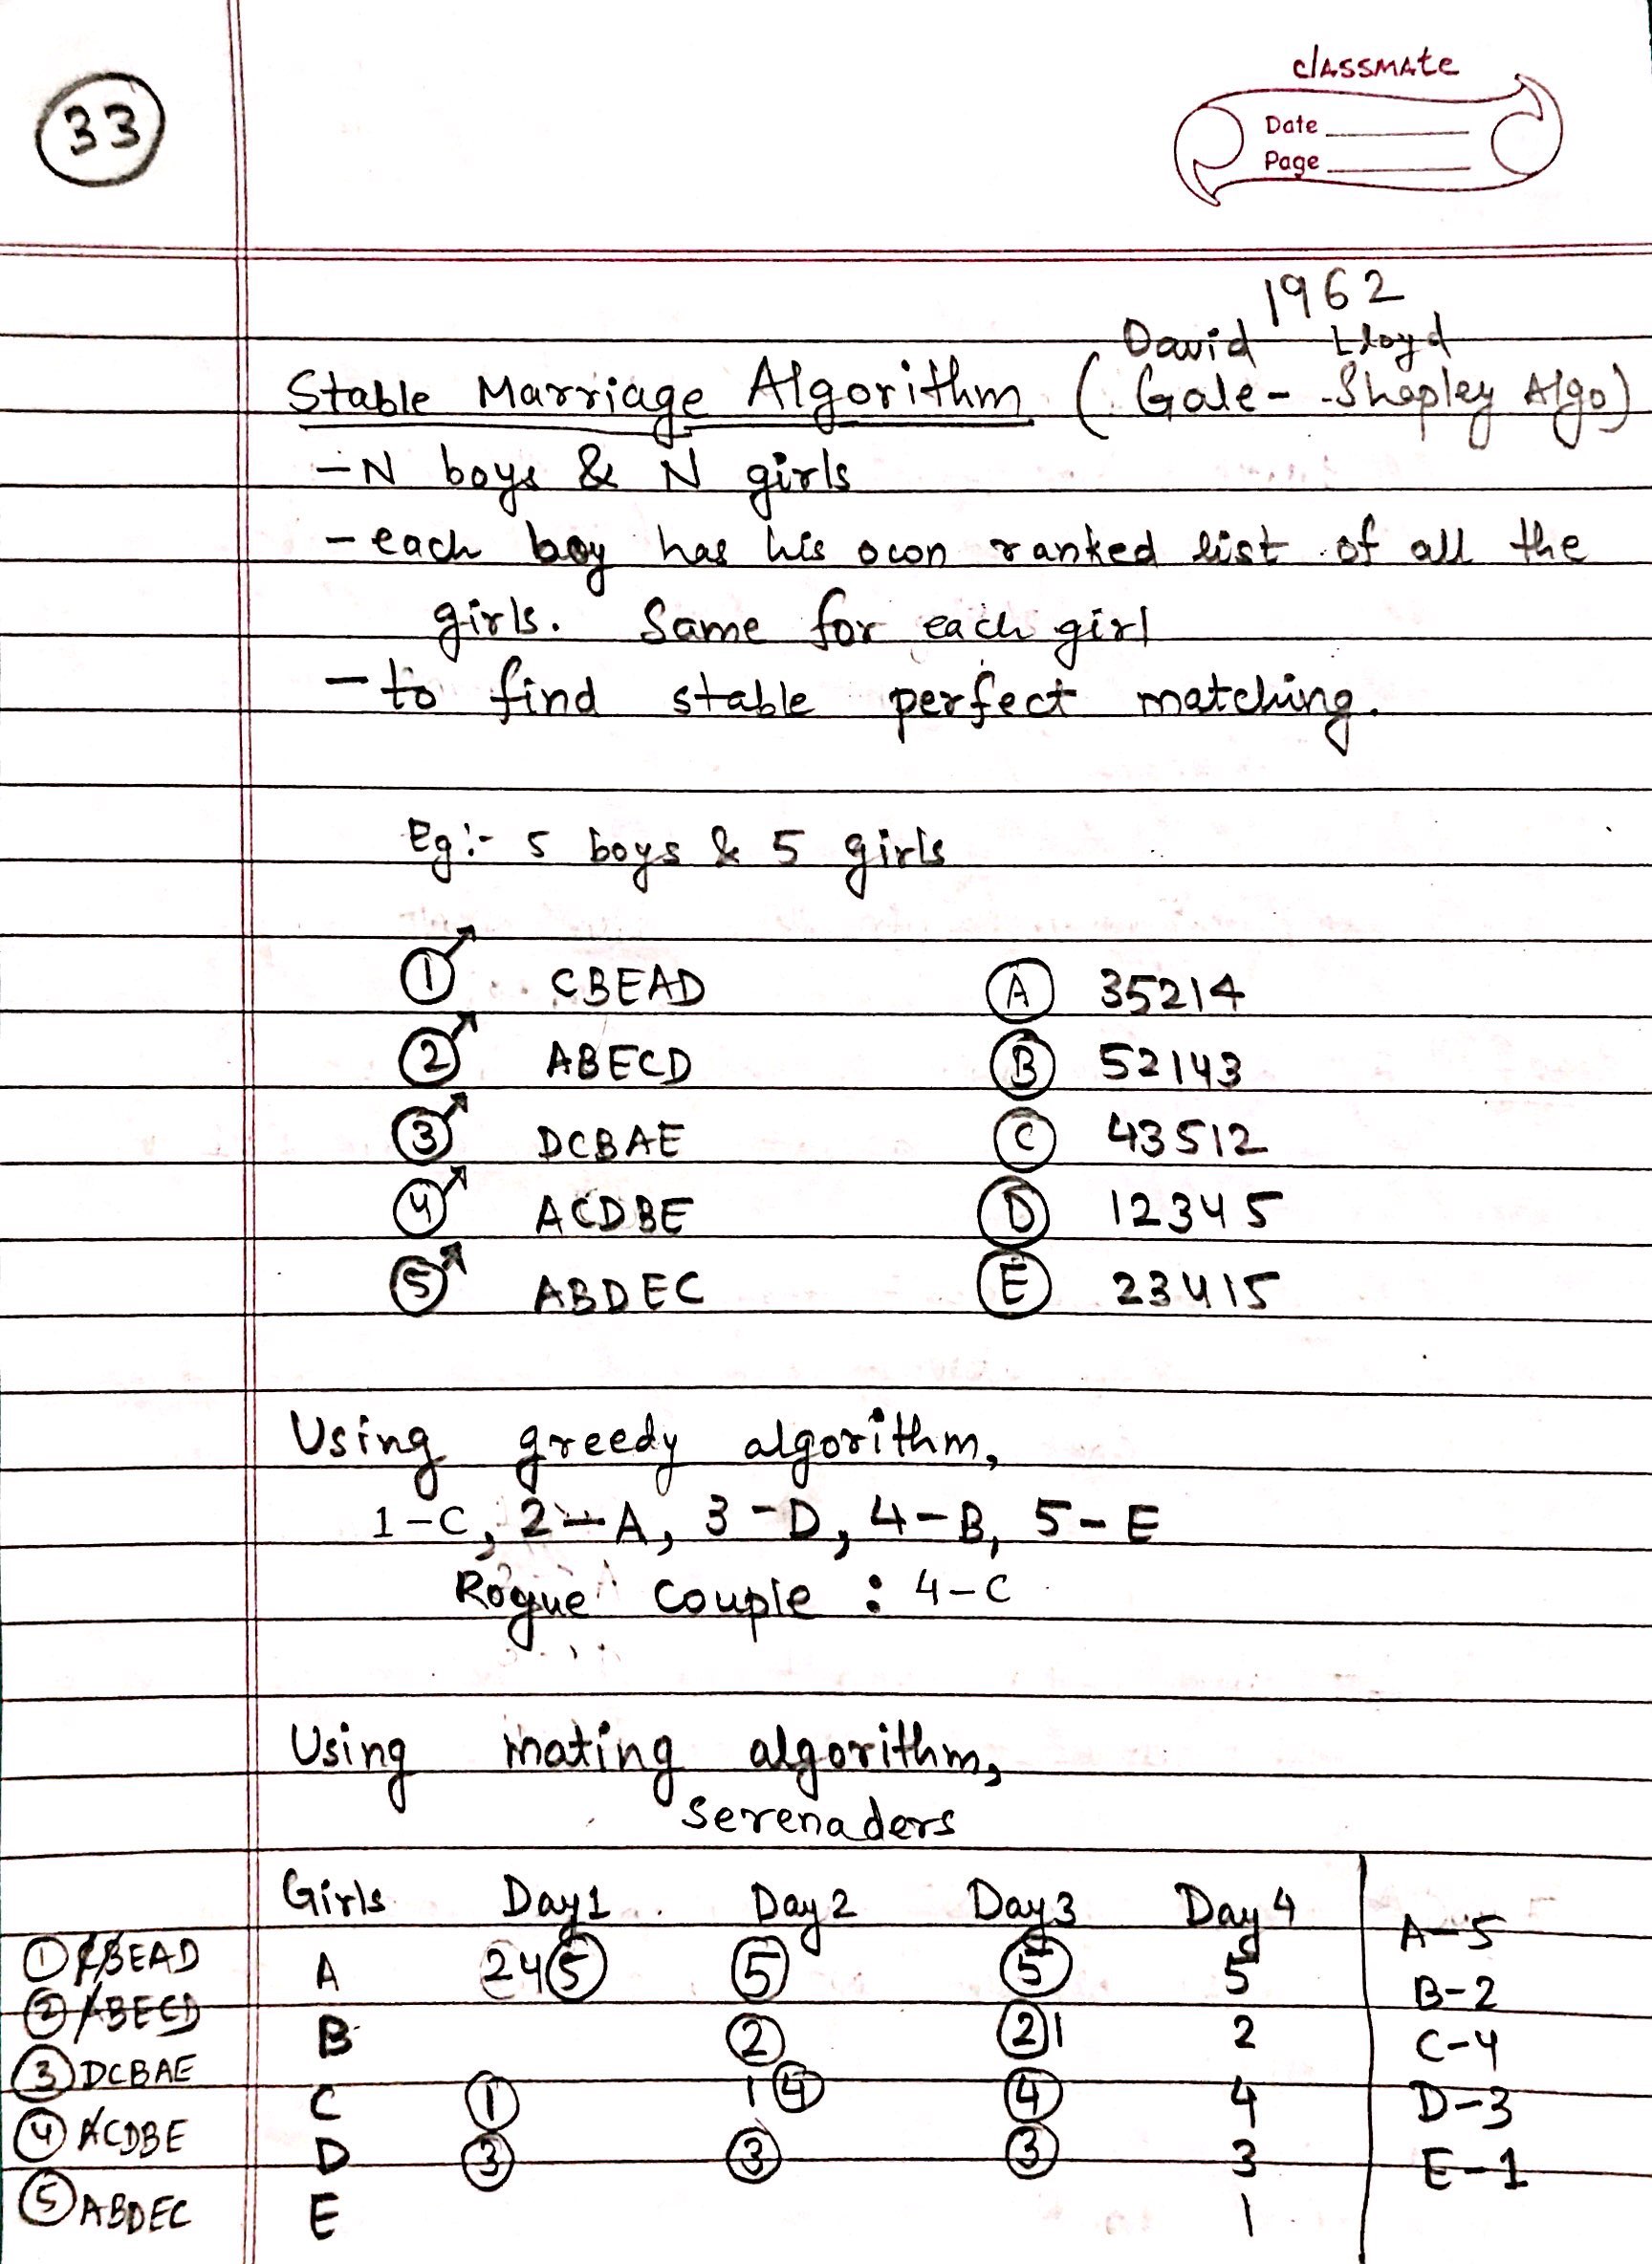 33
classmate
Date
Page
1962
David Lloyd
Stable Marriage Algorithm (Gale-Shapley Algo)
- N boys & N girls
- each boy has his own ranked list of all the
girls. Same for each girl
- to find stable perfect matching.
Eg:- 5 boys & 5 girls
1 CBEAD A 35214
2 ABECD B 52143
3 DCBAE C 43512
4 ACDBE D 12345
5 ABDEC E 23415
Using greedy algorithm,
1-C, 2-A, 3-D, 4-B, 5-E
Rogue Couple : 4-C
Using mating algorithm,
Serenaders
Girls Day1 Day2 Day3 Day4
1 CBEAD A 245 5 5 5 A-5
2 ABECD B 2 21 2 B-2
3 DCBAE C 1 14 4 4 C-4
4 ACDBE D 3 3 3 3 D-3
5 ABDEC E 1 E-1